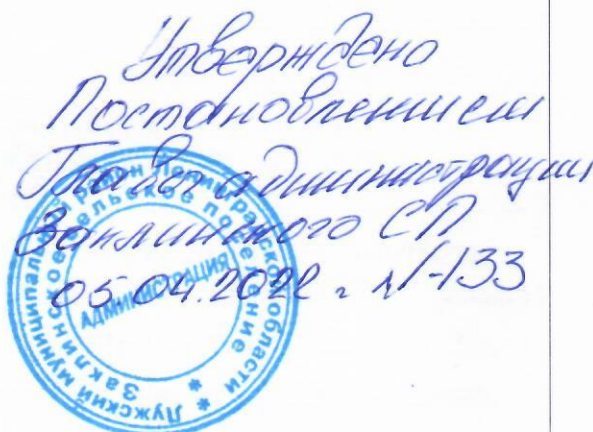 Утверждено
Постановлением
Главы администрации
Заклинского СП
05.04.2022 г. №133
Лужский муниципальный район Ленинградской области
Заклинское сельское поселение
АДМИНИСТРАЦИЯ